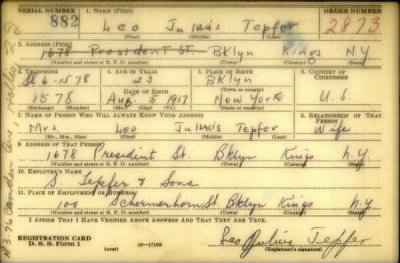 SERIAL NUMBER 1. NAME (Print) ORDER NUMBER
882 Leo Julius Tepfer 2873
(First) (Middle) (Last)
2. ADDRESS (Print)
1678 President St. Bklyn Kings N.Y
(Number and street or R. F. D. number) (Town) (County) (State)
3. TELEPHONE 4. AGE IN YEARS 5. PLACE OF BIRTH 6. COUNTRY OF CITIZENSHIP
Sl 6-1578 23 Bklyn
DATE OF BIRTH
1578 Aug. 5 1917 New York U.S.
(Exchange) (Number) (Mo.) (Day) (Yr.) (State or country)
7. NAME OF PERSON WHO WILL ALWAYS KNOW YOUR ADDRESS 8. RELATIONSHIP OF THAT PERSON
Mrs Leo Julius Tepfer Wife
(Mr., Mrs., Miss) (First) (Middle) (Last)
9. ADDRESS OF THAT PERSON
1678 President St. Bklyn Kings N.Y.
(Number and street or R. F. D. number) (Town) (County) (State)
10. EMPLOYER'S NAME
S Tepfer & Sons
11. PLACE OF EMPLOYMENT OR BUSINESS
100 Schermerhorn St Bklyn Kings N.Y
(Number and street or R. F. D. number) (Town) (County) (State)
I AFFIRM THAT I HAVE VERIFIED ABOVE ANSWERS AND THAT THEY ARE TRUE.
REGISTRATION CARD
D. S. S. Form 1 (over) 16-17105 Leo Julius Tepfer
(Registrant's signature)